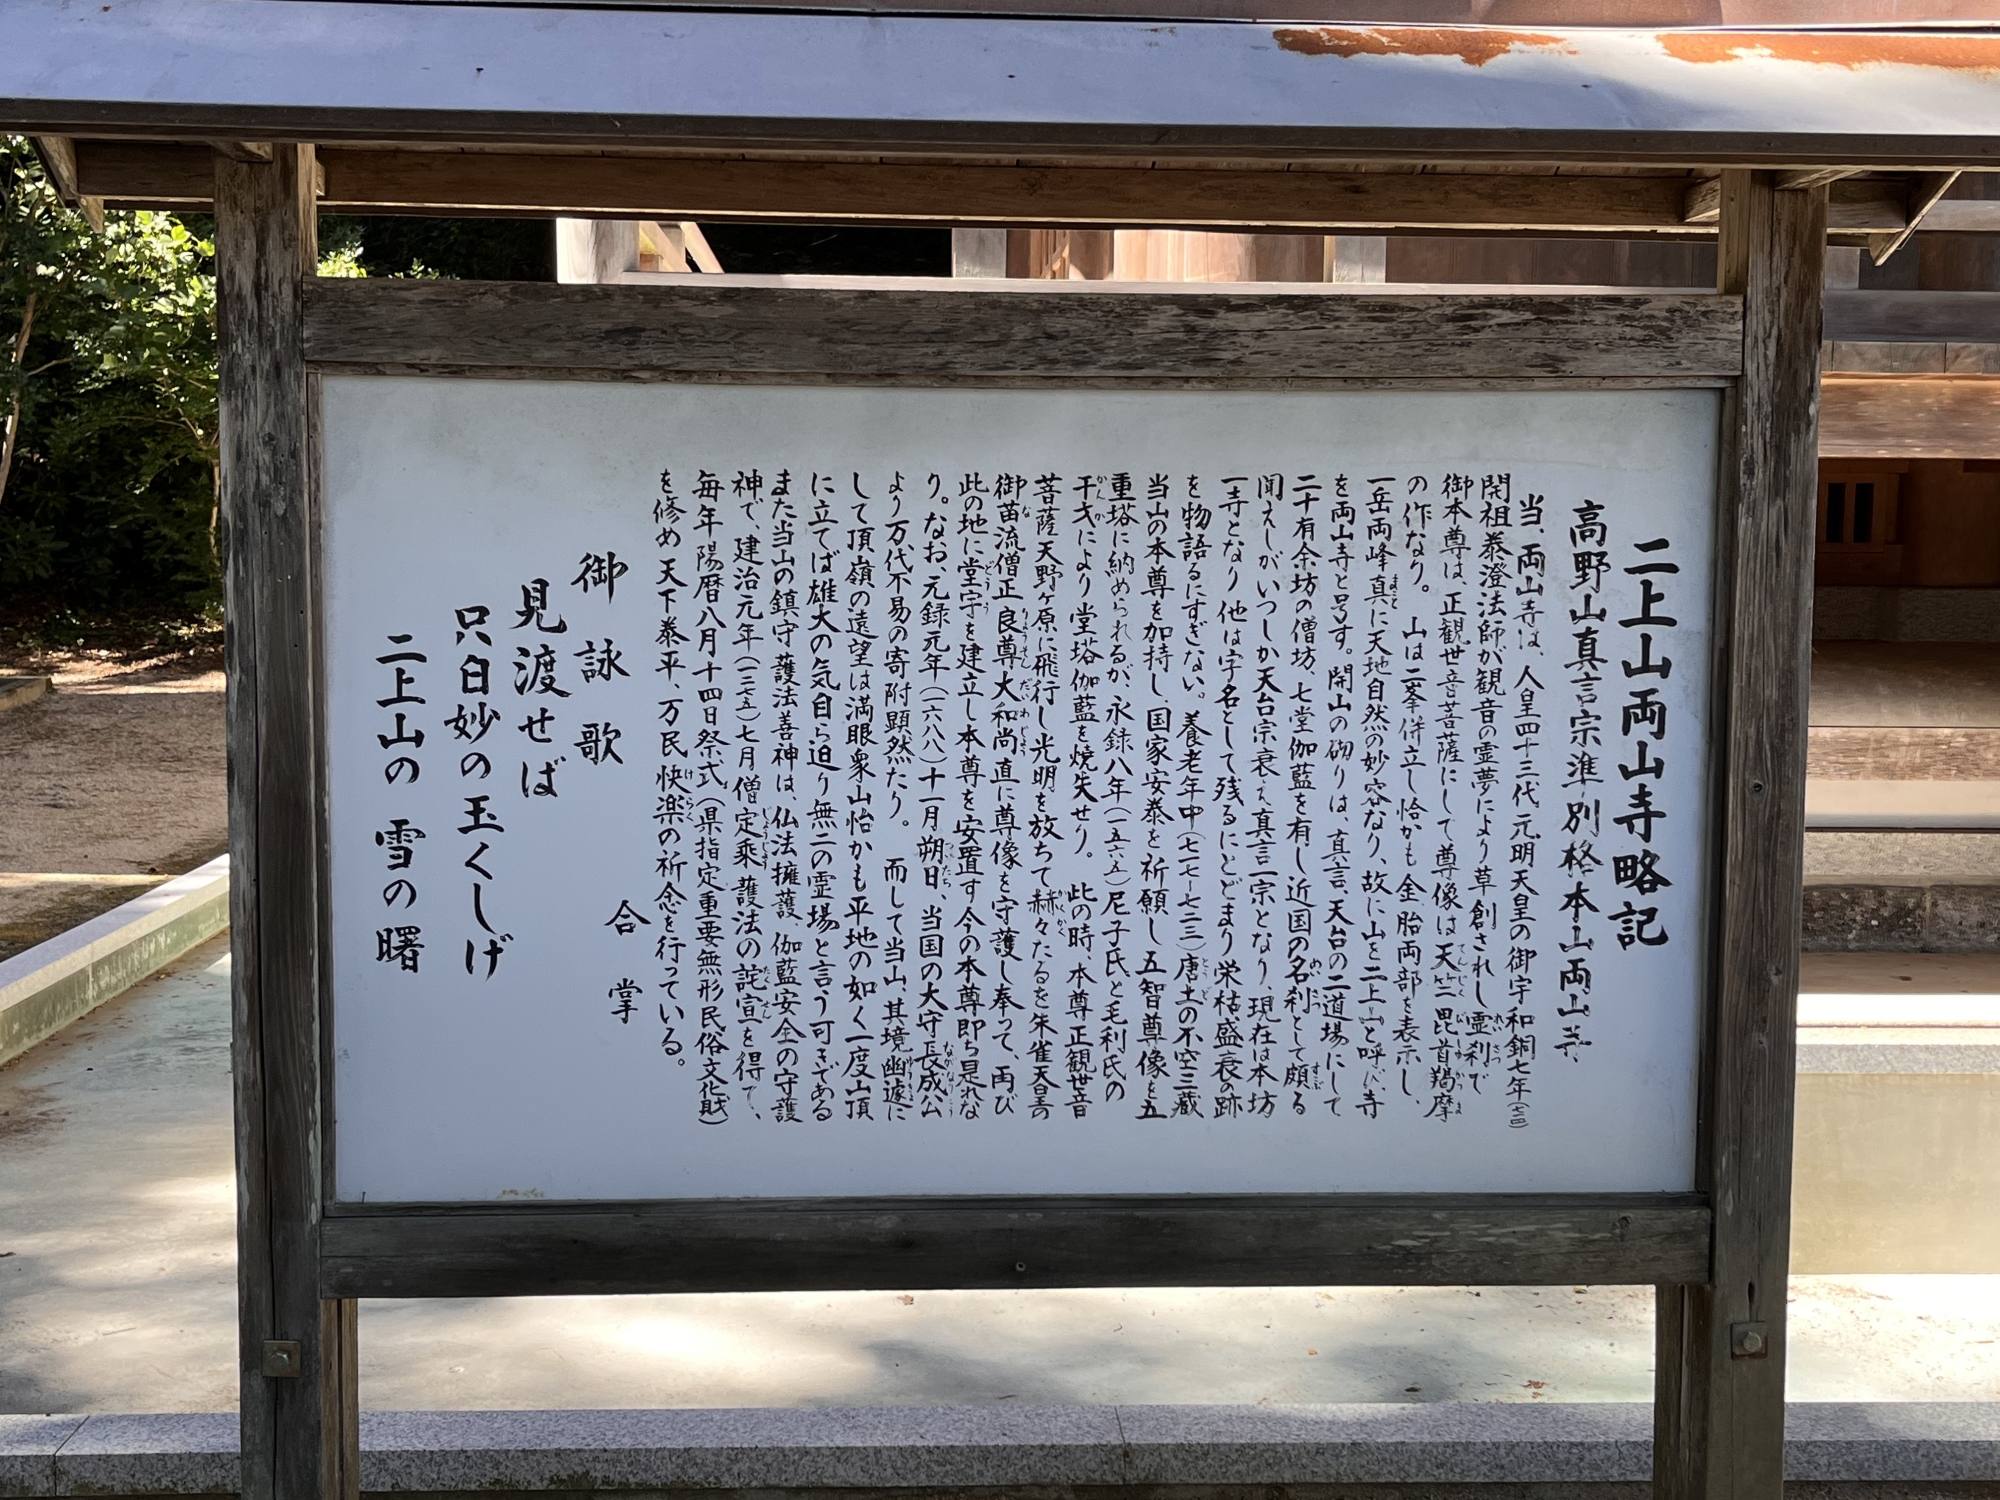 二上山両山寺略記
高野山真言宗準別格本山両山寺
当、両山寺は、人皇四十三代元明天皇の御宇和銅七年(七一四)
開祖泰澄法師が観音の霊夢により草創されし霊刹で
御本尊は、正観世音菩薩にして尊像は天竺毘首羯摩
の作なり。 山は二峯併立し恰かも金胎両部を表示し、
一岳両峰真に天地自然の妙容なり、故に山を二上山と呼び、寺
を両山寺と号す。開山の砌りは、真言、天台の二道場にして
二十有余坊の僧坊、七堂伽藍を有し近国の名刹として頗る
聞えしがいつしか天台宗衰え真言一宗となり、現在は本坊
一寺となり他は字名として残るにとどまり栄枯盛衰の跡
を物語るにすぎない。養老年中(七一七〜七二三)唐土の不空三蔵
当山の本尊を加持し、国家安泰を祈願し五智尊像を五
重塔に納められるが、永録八年(一五六五)尼子氏と毛利氏の
干戈により堂塔伽藍を焼失せり。 此の時、本尊正観世音
菩薩天野ヶ原に飛行し光明を放ちて赫々たるを朱雀天皇の
御苗流僧正良尊大和尚直に尊像を守護し奉って、再び
此の地に堂宇を建立し本尊を安置す今の本尊即ち是れな
り。なお、元録元年(一六八八)十一月朔日、当国の大守長成公
より万代不易の寄附顕然たり。 而して当山、其境幽遠に
して頂嶺の遠望は満眼衆山恰かも平地の如く一度山頂
に立てば雄大の気自ら迫り無二の霊場と言う可きである
また当山の鎮守護法善神は、仏法擁護、伽藍安全の守護
神で、建治元年(一二七五)七月僧定乗護法の託宣を得て、
毎年陽暦八月十四日祭式(県指定重要無形民俗文化財)
を修め天下泰平、万民快楽の祈念を行っている。
合掌
御詠歌
見渡せば
只白妙の玉くしげ
二上山の雪の曙